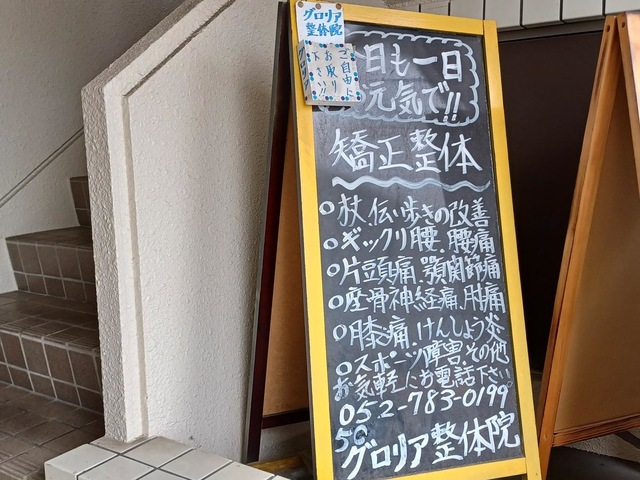 グロリア
整体院
ご自由に
お取り
下さい!!
今日も一日
お元気で!!
矯正整体
○杖、伝い歩きの改善
○ギックリ腰、腰痛
○片頭痛、顎関節痛
○座骨神経痛、肘痛
○膝痛、けんしょう炎
○スポーツ障害、その他
お気軽にお電話下さい。
052-783-0199
5C
グロリア整体院